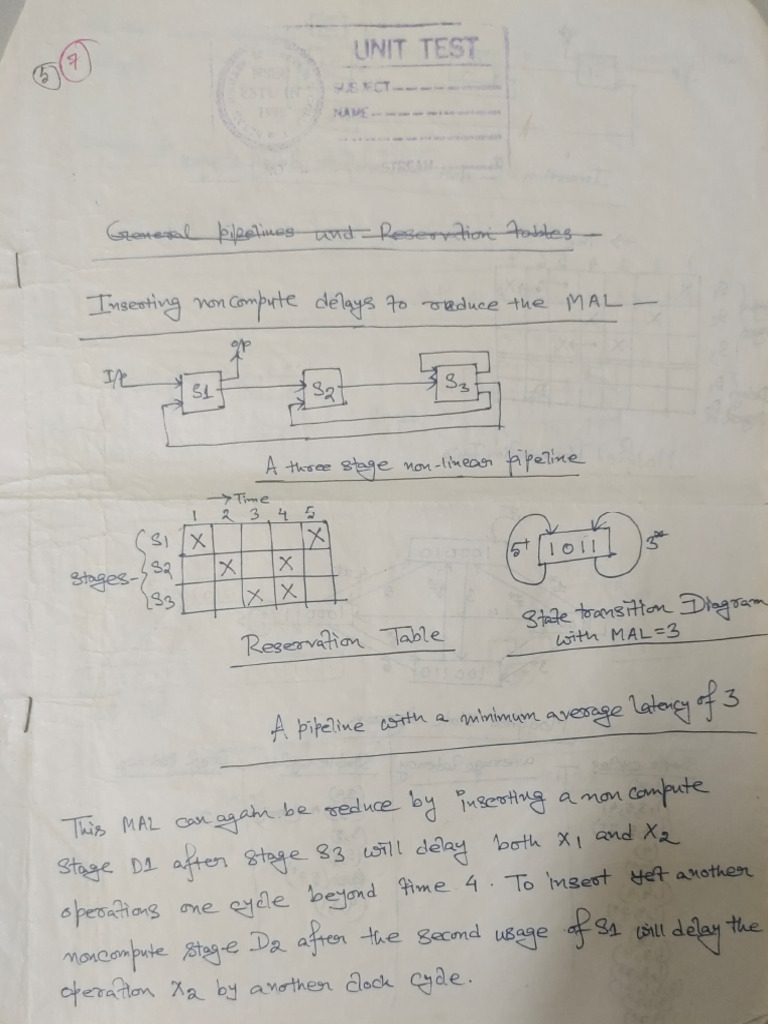 5 7
UNIT TEST
SUBJECT
NAME
General pipelines and Reservation tables
Inserting noncompute delays to reduce the MAL —
I/p
o/p
S1
S2
S3
A three stage non-linear pipeline
→ Time
1 2 3 4 5
S1 X X
Stages S2 X X
S3 X X
Reservation Table
5+ 1011 3*
State transition Diagram
with MAL=3
A pipeline with a minimum average latency of 3
This MAL can again be reduce by inserting a non compute
stage D1 after stage S3 will delay both X1 and X2
operations one cycle beyond time 4. To insert yet another
noncompute stage D2 after the second usage of S1 will delay the
operation X2 by another clock cycle.